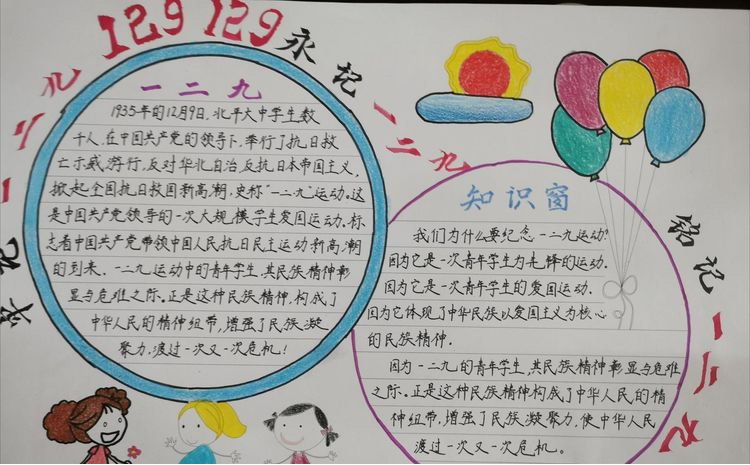 129 129永记
永记一二九
一二九
铭记一二九
一二九
1935年的12月9日,北平大中学生数
千人,在中国共产党的领导下,举行了抗日救
亡示威游行,反对华北自治,反抗日本帝国主义,
掀起全国抗日救国新高潮,史称“一二九”运动。这
是中国共产党领导的一次大规模学生爱国运动。标
志着中国共产党带领中国人民抗日民主运动新高潮
的到来。一二九运动中的青年学生,其民族精神彰
显与危难之际。正是这种民族精神,构成了
中华人民的精神纽带,增强了民族凝
聚力,渡过一次又一次危机!
知识窗
我们为什么要纪念一二九运动?
因为它是一次青年学生为先锋的运动.
因为它是一次青年学生的爱国运动.
因为它体现了中华民族以爱国主义为核心
的民族精神.
因为一二九的青年学生,其民族精神彰显与危难
之际。正是这种民族精神构成了中华人民的精
神纽带,增强了民族凝聚力,使中华人民
渡过一次又一次危机。